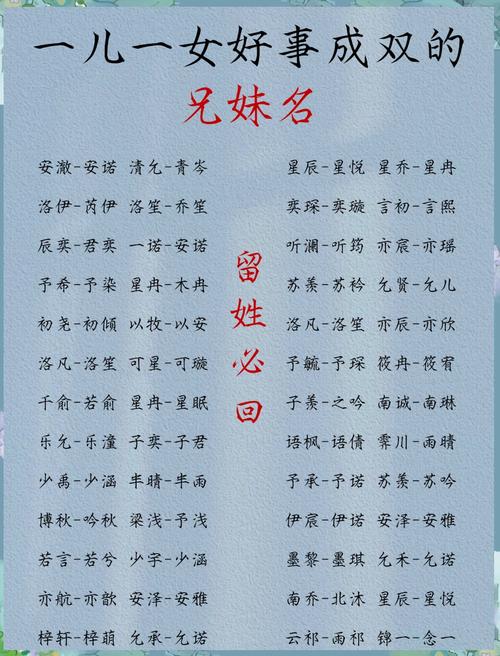 一儿一女好事成双的
兄妹名
安澈-安诺 清允-青岑
洛伊-芮伊 洛笙-乔笙
辰奕-君奕 一诺-安诺
予希-予染 星冉-木冉
初尧-初倾 以牧-以安
洛凡-洛笙 可星-可璇
千俞-若俞 星冉-星眠
乐允-乐潼 子奕-子君
少禹-少涵 半晴-半雨
博秋-吟秋 梁浅-予浅
若言-若兮 少宇-少涵
亦航-亦歆 安泽-安雅
梓轩-梓萌 允承-允诺
留姓必回
星辰-星悦 星乔-星冉
奕琛-奕璇 言初-言熙
听澜-听筠 亦宸-亦瑶
苏羡-苏衿 允贤-允儿
洛凡-洛笙 亦辰-亦欣
予毓-予琛 筱冉-筱宥
子羡-之吟 南诚-南琳
语枫-语倩 霁川-雨晴
予承-予诺 苏羡-苏吟
伊宸-伊诺 安泽-安雅
墨黎-墨琪 允禾-允诺
南乔-北沐 星辰-星悦
云祁-雨祁 锦一-念一